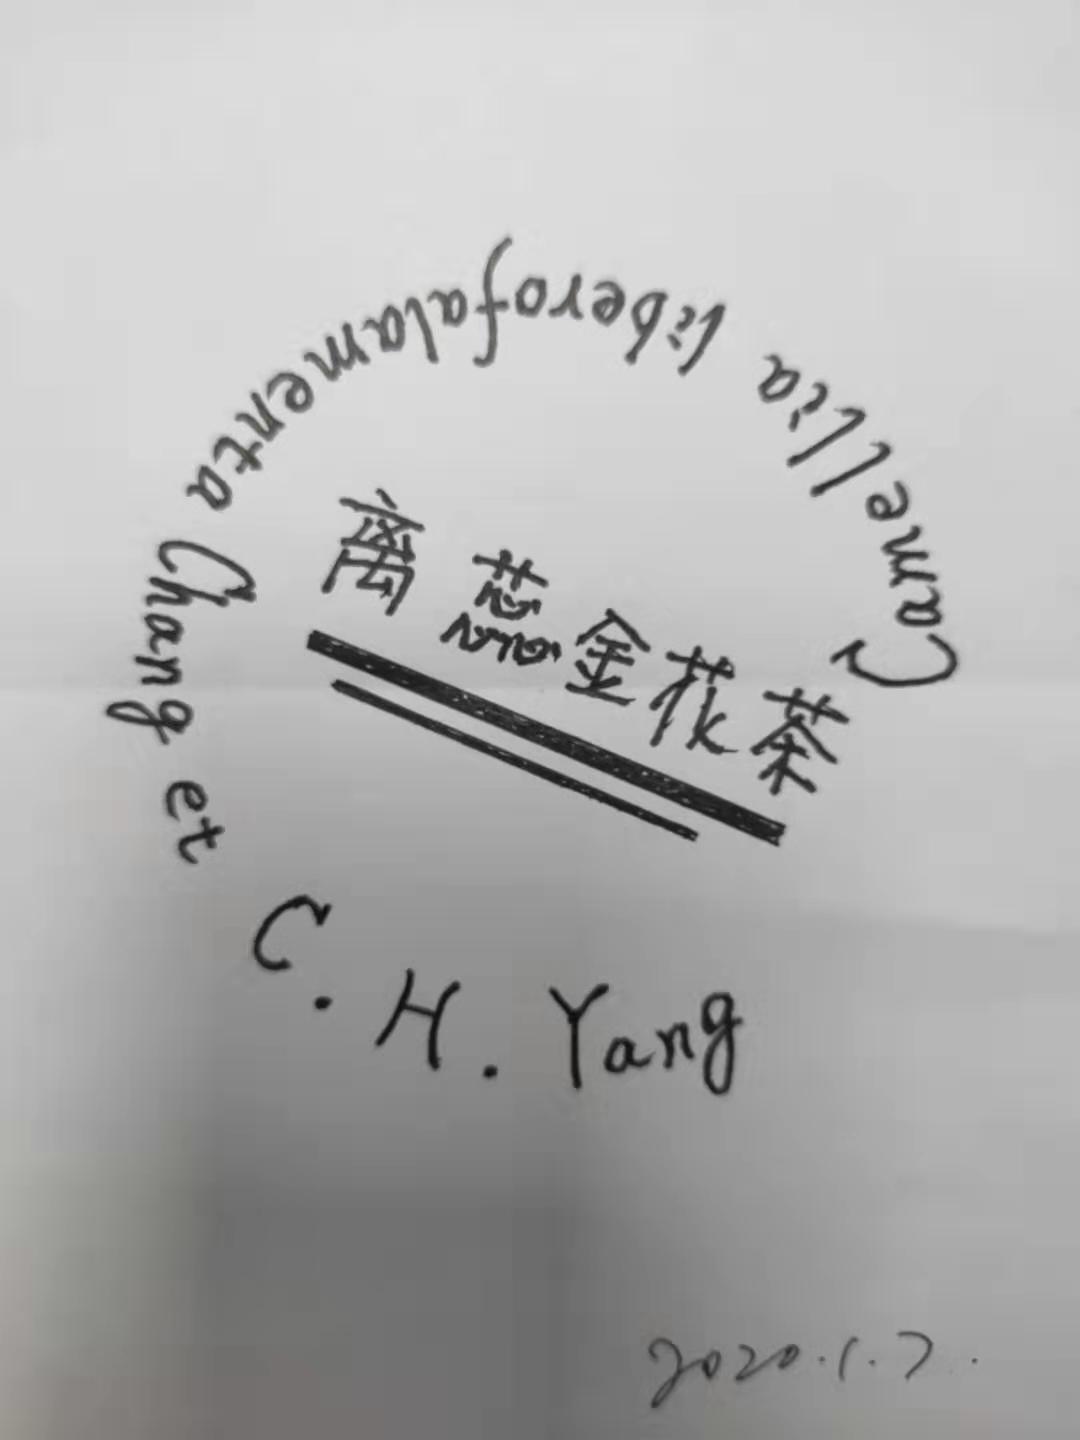 Camellia liberofalamenta Chang et C. H. Yang
离蕊金花茶
2020.1.7.